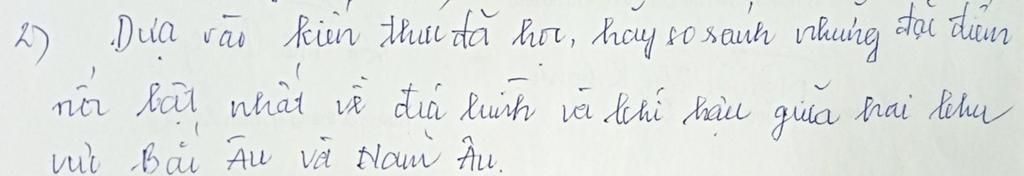 2) Dựa vào kiến thức đã học, hãy so sánh những đặc điểm
nổi bật nhất về địa hình và khí hậu giữa hai khu
vực Bắc Âu và Nam Âu.